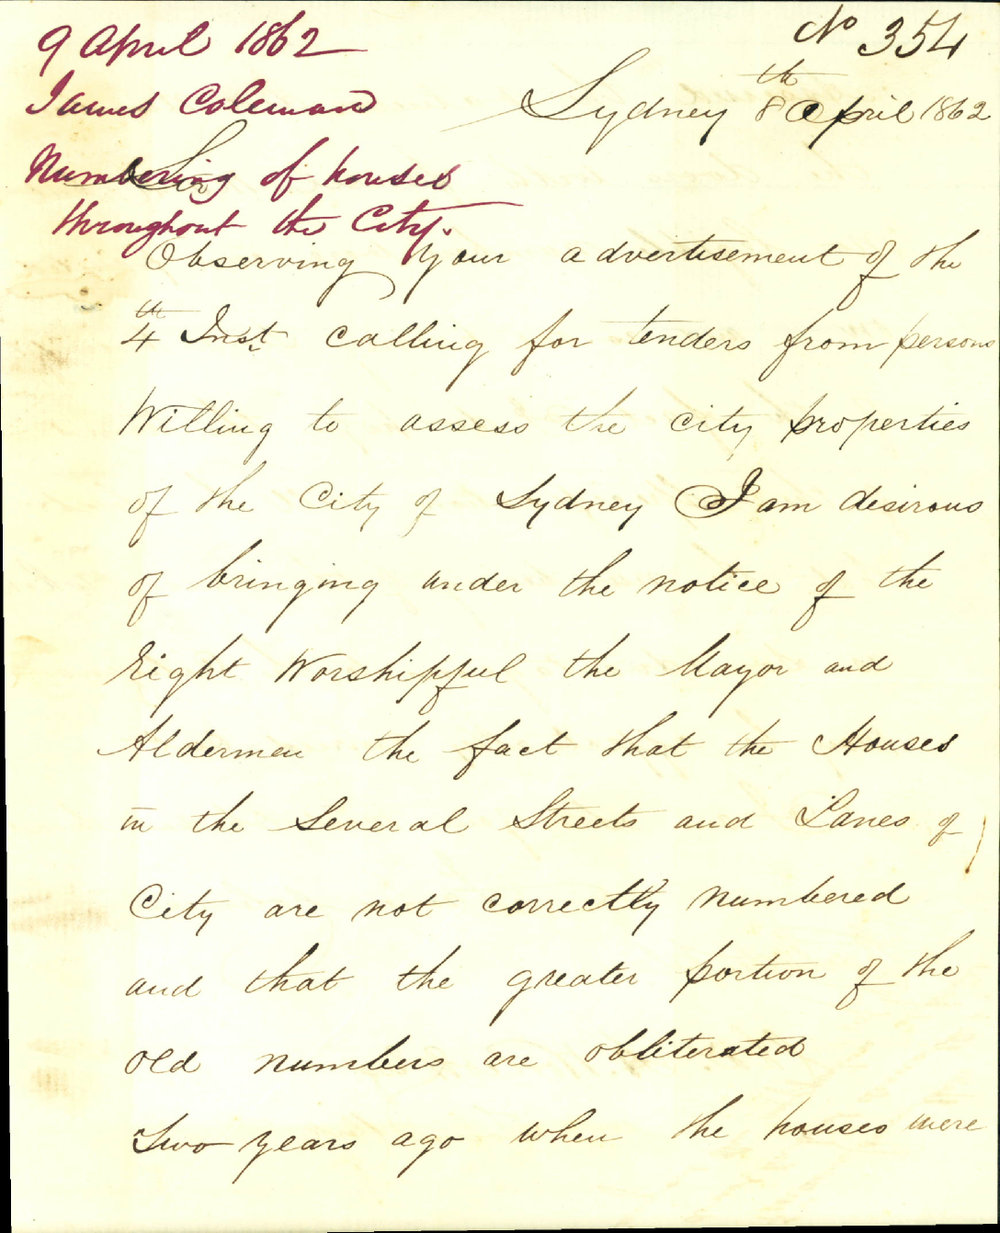 No 354
9 April 1862
James Coleman
Numbering of houses
throughout the City.
Sydney 8th April 1862
Sir
Observing your advertisement of the
4th Inst calling for tenders from persons
Willing to assess the city properties
of the City of Sydney I am desirous
of bringing under the notice of the
Right Worshipful the Mayor and
Aldermen the fact that the Houses
in the Several Streets and Lanes of
City are not correctly numbered
and that the greater portion of the
old numbers are obliterated
Two years ago when the houses were